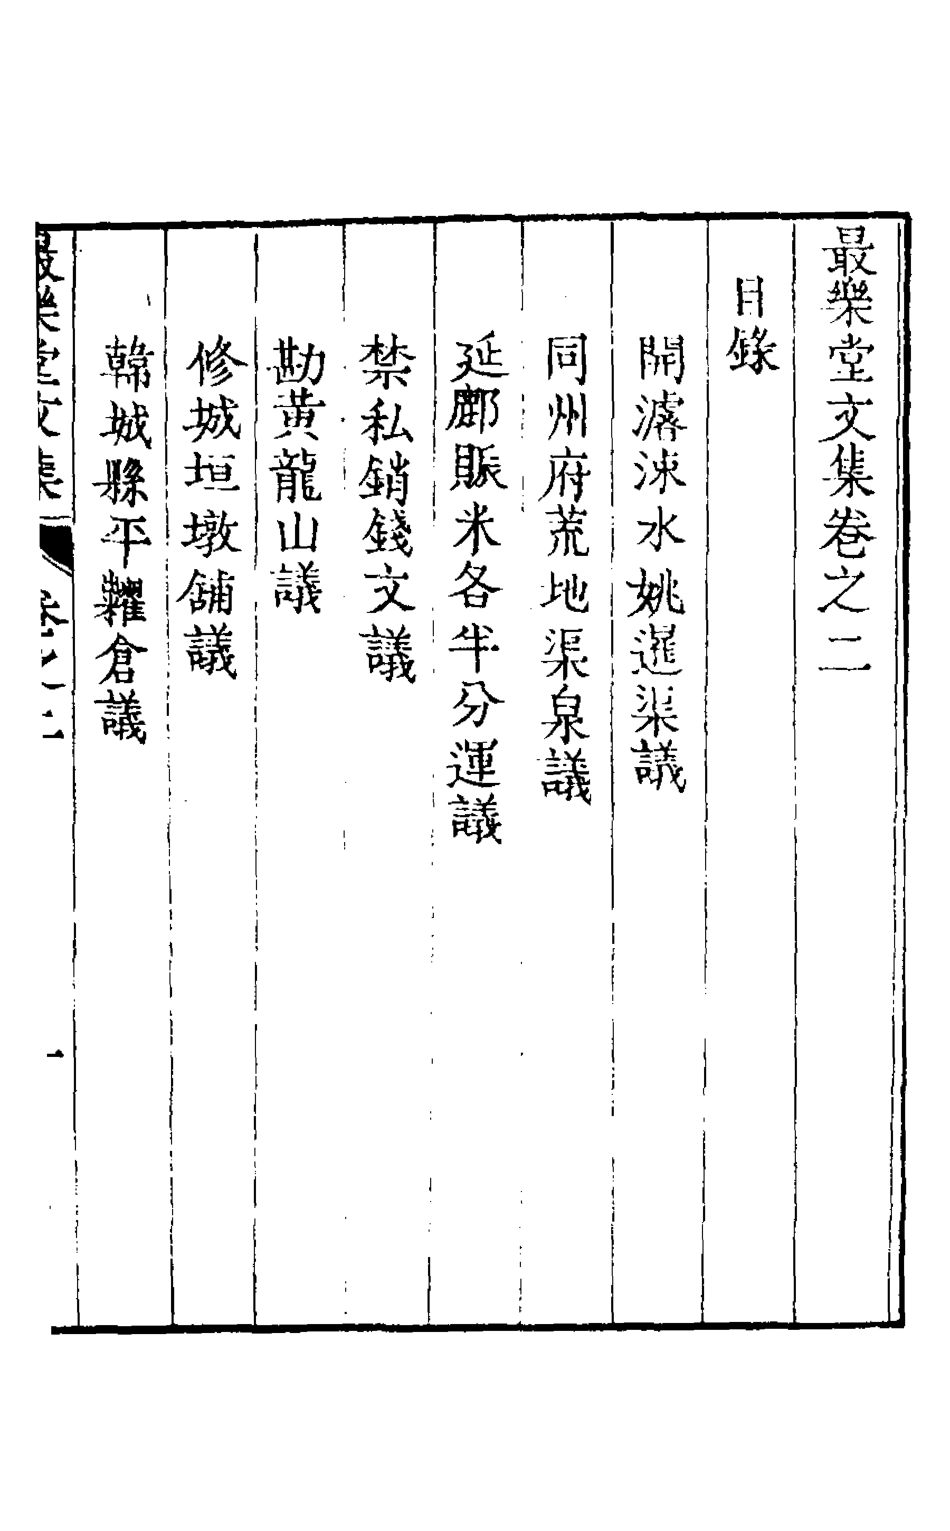 最樂堂文集卷之二
目錄
開濬涑水姚暹渠議
同州府荒地渠泉議
延鄜賑米各半分運議
禁私銷錢文議
勘黃龍山議
修城垣墩舖議
韓城縣平糶倉議
最樂堂文集 卷之二 一